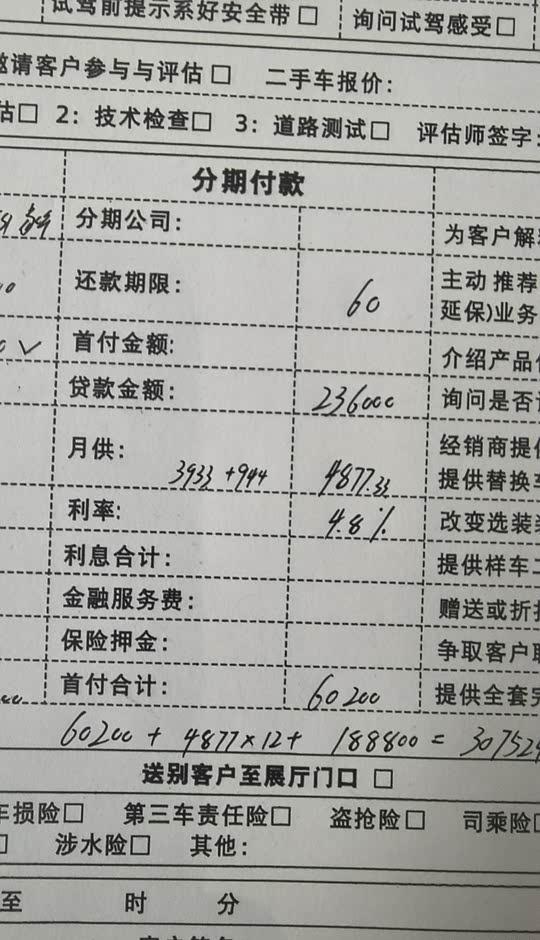 试驾前提示系好安全带 □ 询问试驾感受□
邀请客户参与与评估 □ 二手车报价：
估□ 2：技术检查□ 3：道路测试□ 评估师签字：
分期付款
分期公司： 为客户解
还款期限： 60 主动 推荐
延保)业务
首付金额： 介绍产品
贷款金额： 236000 询问是否
月供： 3933 +944 4877.33 经销商提供
提供替换车
利率： 4.8% 改变选装
利息合计： 提供样车
金融服务费： 赠送或折
保险押金： 争取客户
首付合计： 60200 提供全套
60200 + 4877×12+ 188800 = 307524
送别客户至展厅门口 □
车损险□ 第三车责任险□ 盗抢险□ 司乘险□
□ 涉水险□ 其他：
至 时 分